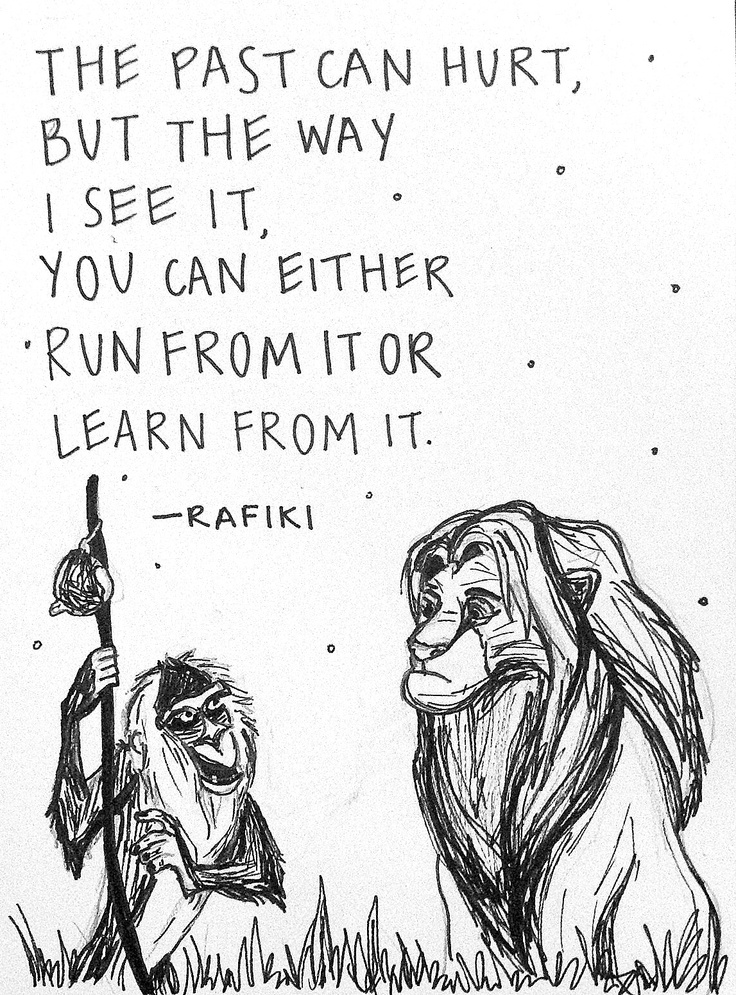 THE PAST CAN HURT,
BUT THE WAY
I SEE IT,
YOU CAN EITHER
RUN FROM IT OR
LEARN FROM IT.
—RAFIKI